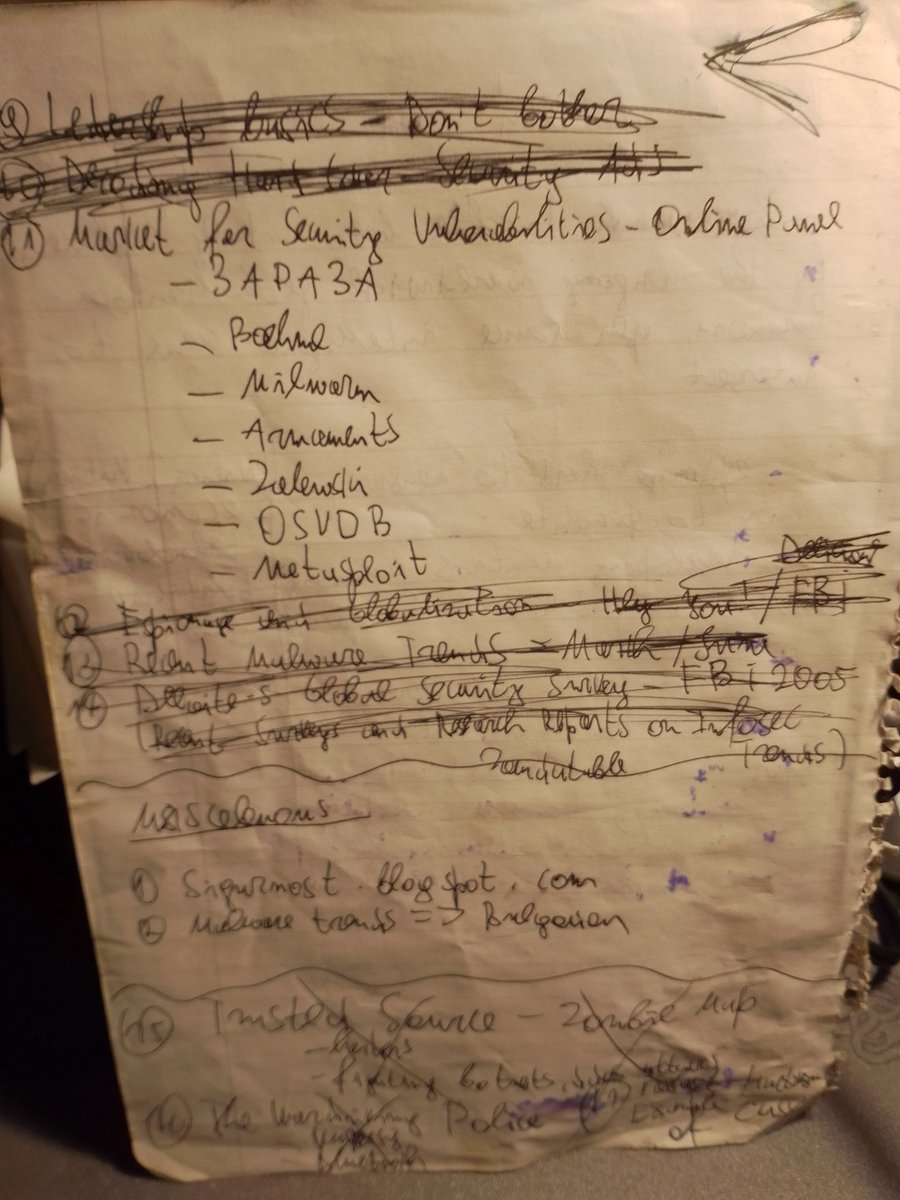 9) Leadership basics - Don't bother
10) Decoding - Security Ads
11) Market for Security Vulnerabilities - Online Panel
- 3APA3A
- Boehme
- Milworm
- Armaments
- Zalewski
- OSVDB
- Metasploit
Deloitte's
12) Espionage and Globalization - Hey You! / FBI
13) Recent Malware Trends - March / June
14) Deloitte-s Global Security Survey - FBI 2005
(Recent Surveys and Research Reports on Infosec
Roundtable Trends)
Miscelenous
1) Sigurnost.blogspot.com
2) Malware trends => Bulgarian
15) Trusted Source - Zombie Map
- fighting botnets
16) The Police
Example
of